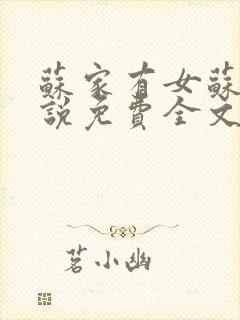 蘇家有女蘇
說免費全文
茗小幽